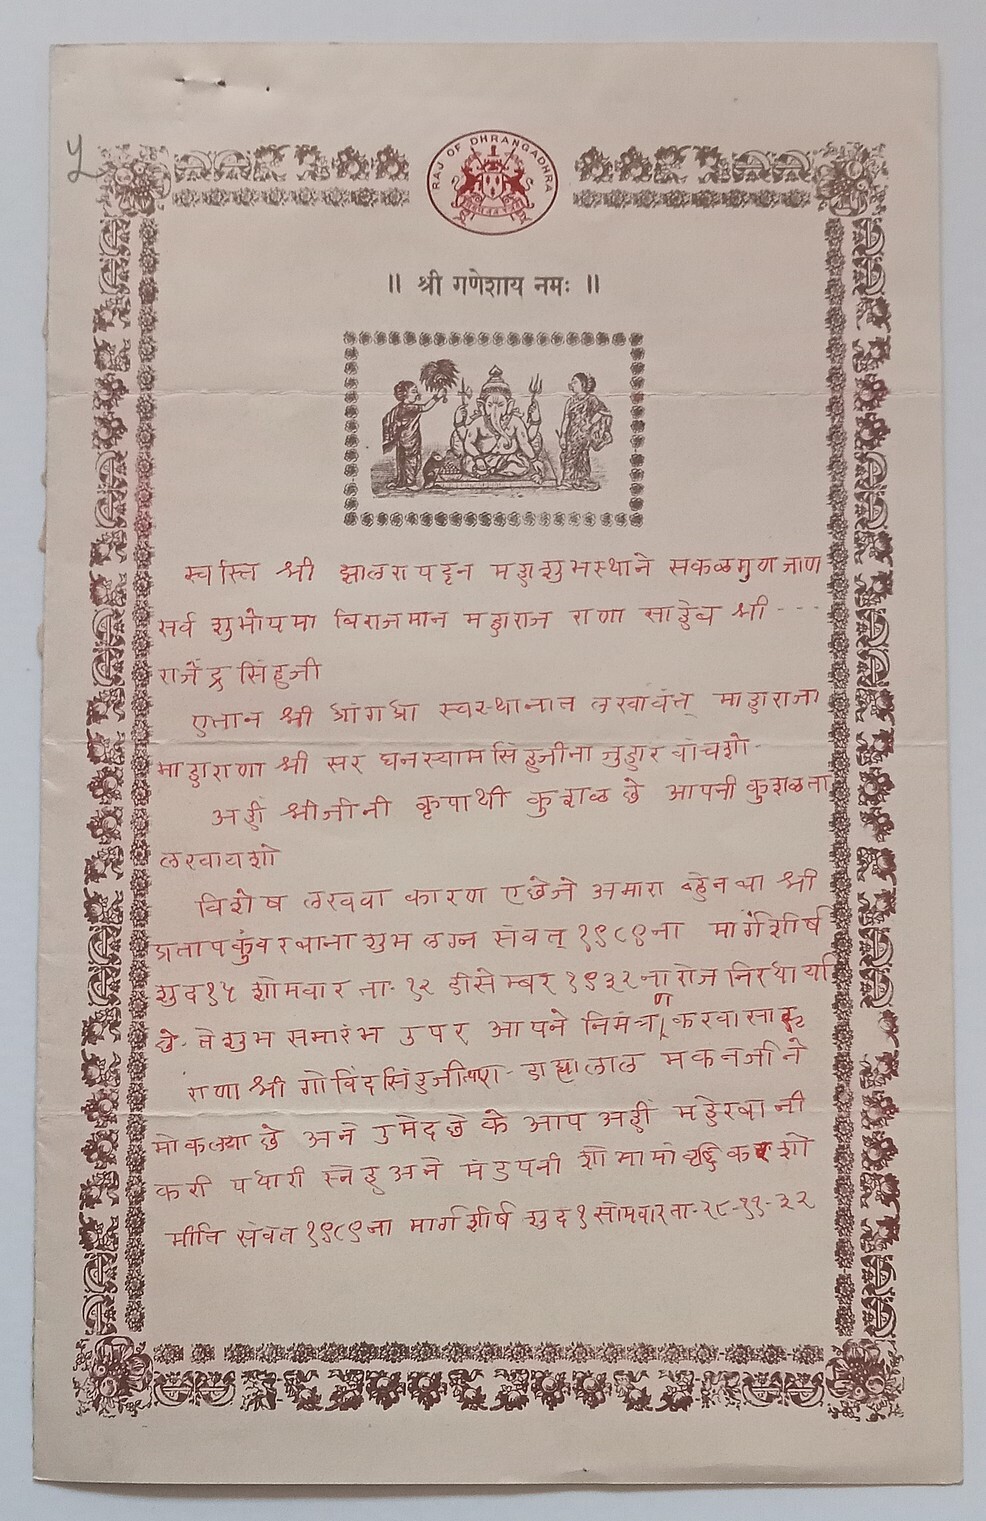 RAJ OF DHRANGADHRA
॥ श्री गणेशाय नमः ॥
स्वस्ति श्री झालरापट्टन महाशुभस्थाने सकळगुणजाण
सर्व शुभोपमा विराजमान महाराज राणा साहेब श्री - - -
राजेंद्रसिंहजी
एतान श्री ध्रांगध्रा स्वस्थानान लखावंत् माहाराजा
माहाराणा श्री सर घनस्यामसिंहजीना जुहार वांचशो-
अहीं श्रीजीनी कृपाथी कुशळ छे आपनी कुशळता
लखावशो
विशेष लखवा कारण एछेजे अमारा व्हेन बा श्री
प्रतापकुंवरबाना शुभ लग्न संवत् १९८९ना मार्गशीर्ष
शुद१५ शोमवार ता-१२ डीसेम्बर १९३२ना रोज निरधार्या
छे- ते शुभ समारंभ उपर आपने निमंत्रण करवा सारू
राणा श्री गोविंदसिंहजी डाह्यालाल मकनजीने
मोकल्या छे अने उमेद छे के आप अहीं महेरबानी
करी पधारी स्नेह अने मंडपनी शोभामां वृद्धि करशो
मीति संवत १९८९ना मार्गशीर्ष शुद १ सोमवार ता-२८-११-३२